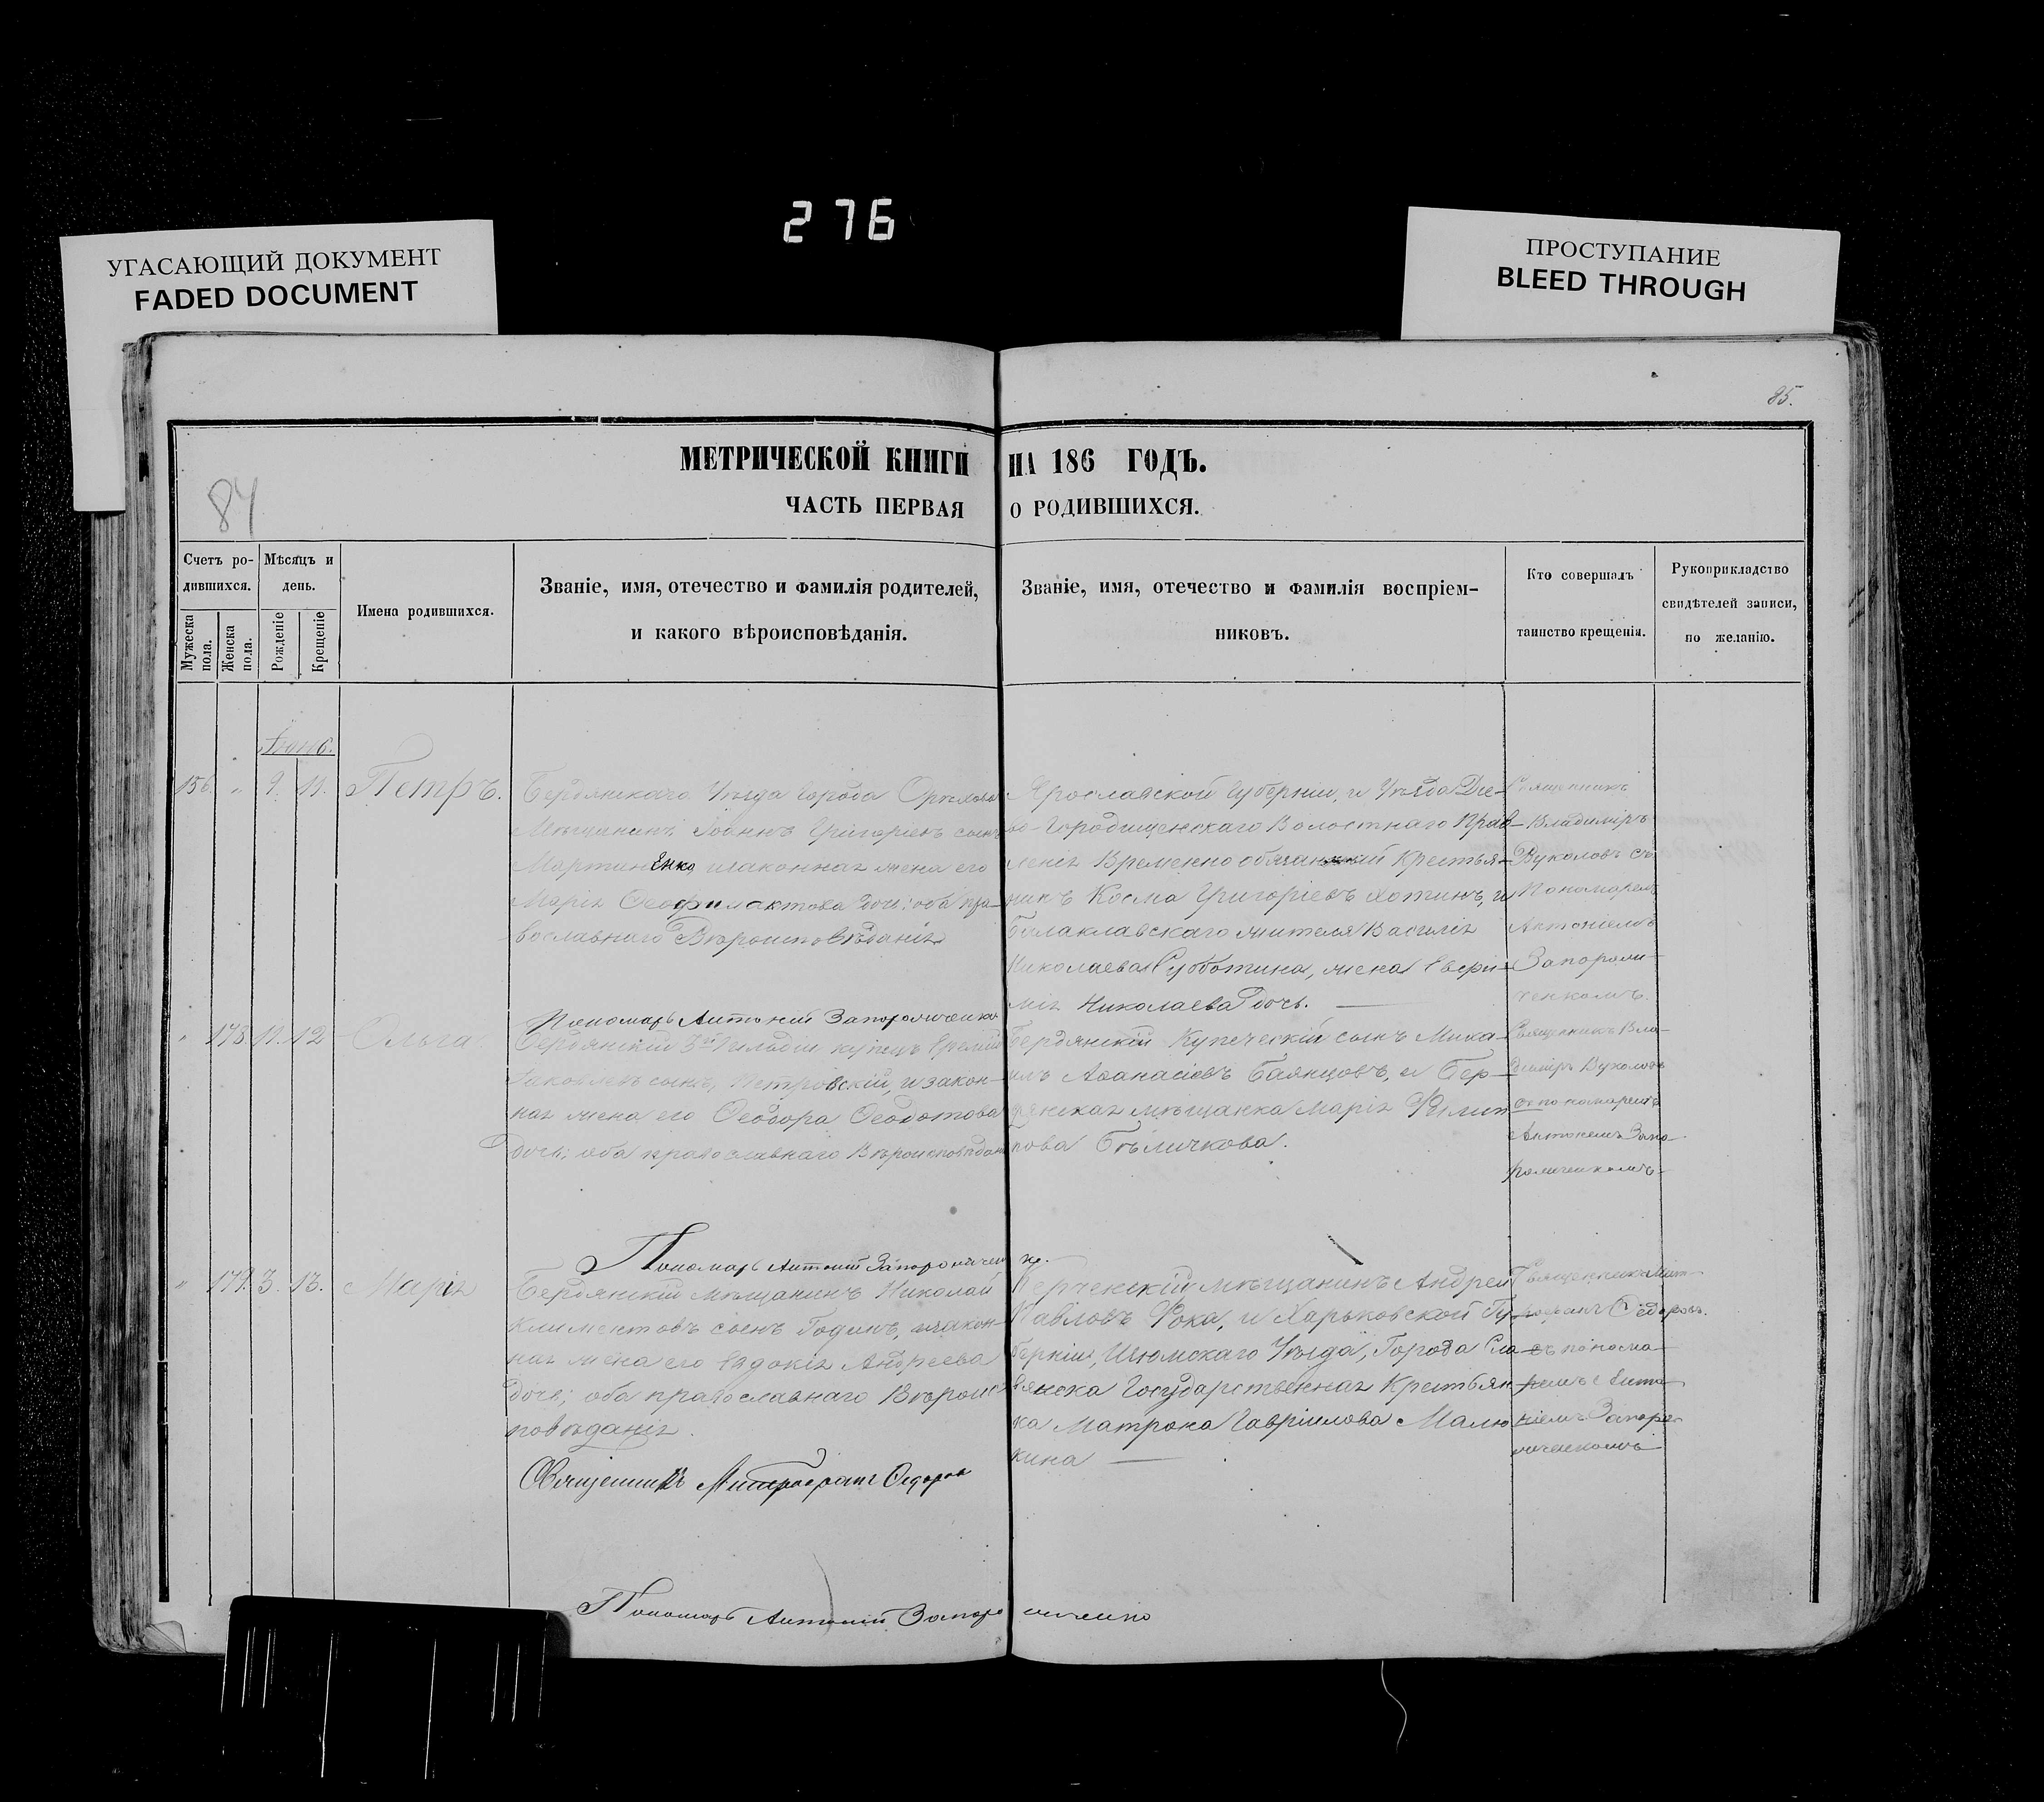 276
УГАСАЮЩИЙ ДОКУМЕНТ
FADED DOCUMENT
ПРОСТУПАНИЕ
BLEED THROUGH
85.
84
МЕТРИЧЕСКОЙ КНИГИ НА 186 ГОДЪ.
ЧАСТЬ ПЕРВАЯ О РОДИВШИХСЯ.
Счетъ ро-
дившихся.
Мужеска пола.
Женска пола.
Мѣсяцъ и
день.
Рожденіе
Крещеніе
Имена родившихся.
Званіе, имя, отечество и фамилія родителей,
и какого вѣроисповѣданія.
Званіе, имя, отечество и фамилія воспріем-
никовъ.
Кто совершалъ
таинство крещенія.
Рукоприкладство
свидѣтелей записи,
по желанію.
156. " 9. 11. Петръ.
Бердянскаго Уѣзда города Орѣхова
Мѣщанинъ Іоаннъ Григоріевъ сынъ
Мартиненко, и законная жена его
Марія Ѳеофилактова дочь; оба пра-
вославнаго Вѣроисповѣданія
Ярославской Губерніи, и Уѣзда Дие-
во-Городищенскаго Волостнаго Прав-
ленія Временно обязанный Крестья-
нинъ Косма Григоріевъ Хотинъ, и
Балаклавскаго жителя Василія
Николаева Субботина, жена Евфи-
мія Николаева дочь.
Священникъ
Владиміръ
Вуколовъ съ
Пономаремъ
Антоніемъ
Запорожченкомъ.
Пономарь Антоній Запорожченко
" 178. 11. 12 Ольга
Бердянскій 3й Гильдіи купецъ Еремій
Іаковлевъ сынъ, Петровскій, и закон-
ная жена его Ѳеодора Ѳеодотова
дочь; оба православнаго Вѣроисповѣдан
Бердянскій Купеческій сынъ Миха-
илъ Аѳанасіевъ Баянцовъ, и Бер-
дянская мѣщанка Марія Филип
пова Бѣличкова.
Священникъ Вла-
диміръ Вуколовъ
съ пономаремъ
Антоніемъ Запо-
рожченкомъ
Пономарь Антоній Запорожченко.
" 179. 3. 13. Марія
Бердянскій мѣщанинъ Николай
Климентовъ сынъ Годинъ, и закон-
ная жена его Евдокія Андреева
дочь; оба православнаго Вѣроис-
повѣданія.
Керченскій мѣщанинъ Андрей
Павловъ Фока, и Харьковской Гу-
берніи, Изюмскаго Уѣзда, Города Сла-
вянска Государственная Крестьян-
ка Матрона Гавріилова Малю
кина
Священникъ Мит-
рофанъ Ѳедоровъ.
съ понома-
ремъ Анто-
ніемъ Запоро-
жченкомъ
Священникъ Митрофанъ Ѳедоровъ
Пономарь Антоній Запорожченко